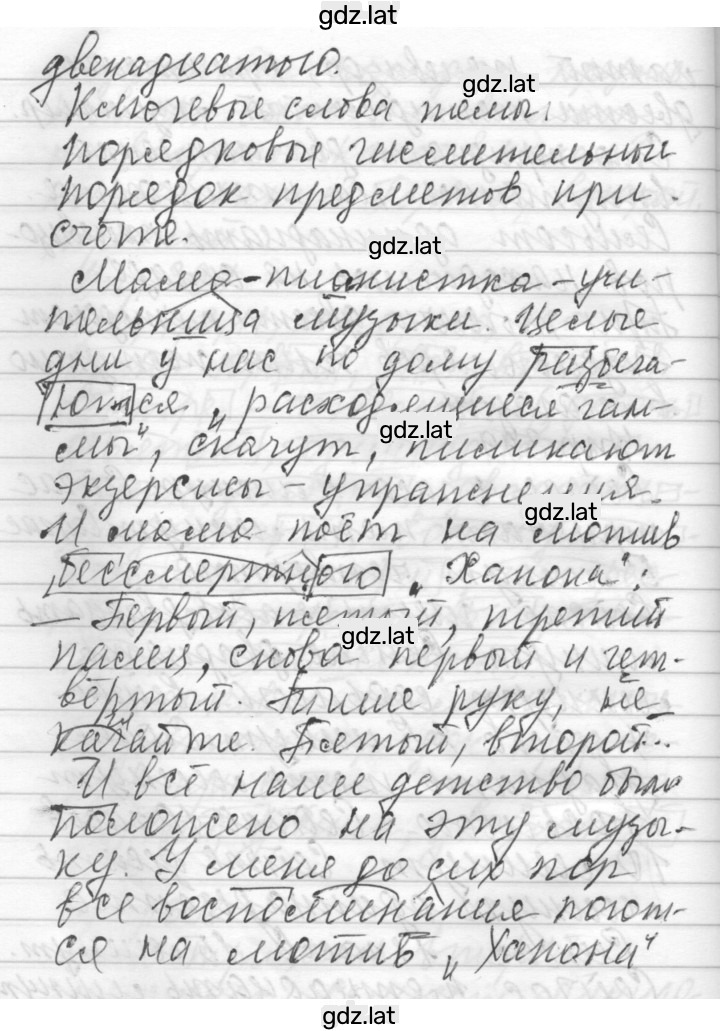 gdz.lat
двенадцатого.
gdz.lat
Ключевые слова темы:
порядковые числительные
порядок предметов при
счёте.
gdz.lat
Мама-пианистка-учи-
тельница музыки. Целые
дни у нас по дому разбега-
ются „расходящиеся гам-
gdz.lat
мы“, скачут, пиликают
экзерсисы – упражнения.
gdz.lat
И мама поёт на мотив
бессмертного „Ханона“:
– Первый, пятый, третий
gdz.lat
палец, снова первый и чет-
вёртый. Тише руку, не
качайте. Пятый, второй...
И всё наше детство было
положено на эту музы-
ку. У меня до сих пор
все воспоминания поют-
ся на мотив „Ханона“
gdz.lat